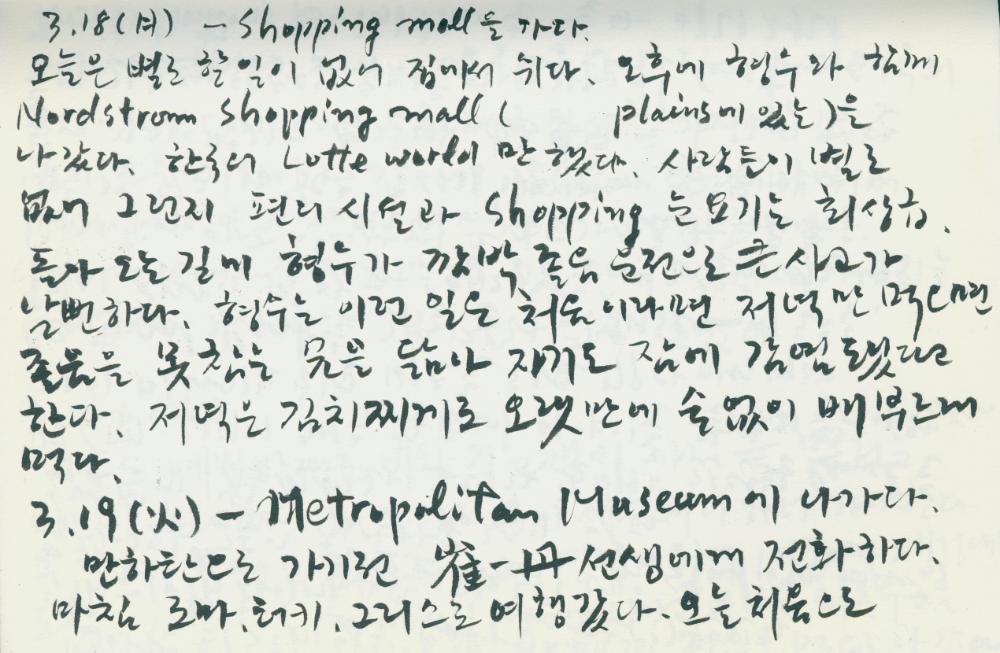 3.18(月) - Shopping mall을 가다.
오늘은 별로 할일이 없어 집에서 쉬다. 오후에 형수와 함께
Nordstrom shopping mall ( plains에 있는)을
나갔다. 한국의 Lotte world 만 했다. 사람들이 별로
없어 그런지 편의시설과 shopping 눈요기는 최상급.
돌아 오는 길에 형수가 깜박 졸음 운전으로 큰 사고가
날뻔하다. 형수는 이런 일은 처음이라면 저녁만 먹으면
졸음을 못참는 것을 닮아 자기도 잠에 감염됐다고
한다. 저녁은 김치찌게로 오랫만에 술없이 배부르게
먹다.
3.19(火) - Metropolitan Museum에 나가다.
만하탄으로 가기전 崔一丹선생에게 전화하다.
마침 로마, 터키, 그리스로 여행갔다. 오늘 처음으로